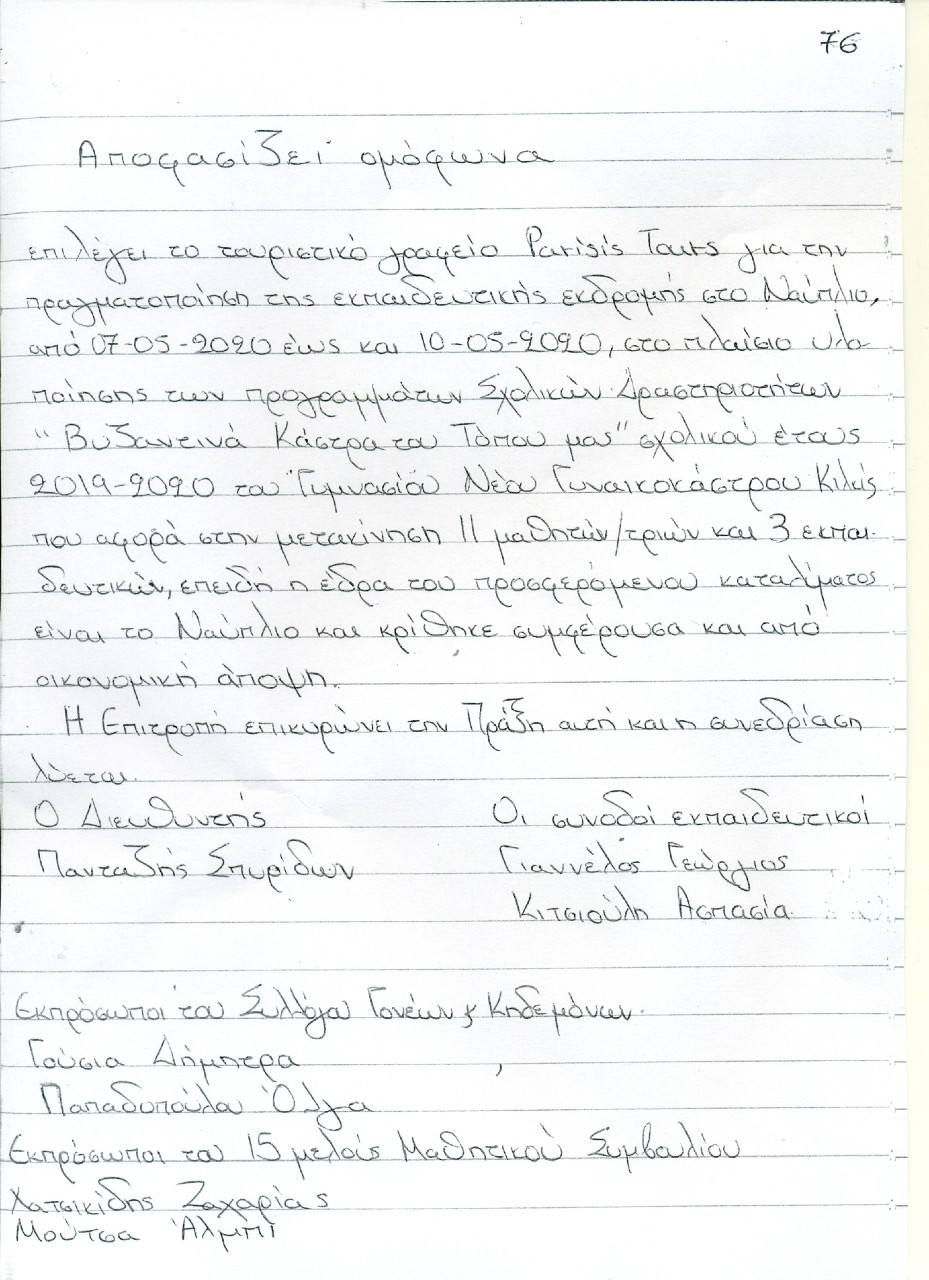 76
Αποφασίζει ομόφωνα
επιλέγει το τουριστικό γραφείο Parisis Tours για την
πραγματοποίηση της εκπαιδευτικής εκδρομής στο Ναύπλιο,
από 07-05-2020 έως και 10-05-2020, στο πλαίσιο υλο-
ποίησης των προγραμμάτων Σχολικών Δραστηριοτήτων
"Βυζαντινά Κάστρα του Τόπου μας" σχολικού έτους
2019-2020 του Γυμνασίου Νέου Γυναικοκάστρου Κιλκίς
που αφορά στην μετακίνηση 11 μαθητών/τριών και 3 εκπαι-
δευτικών, επειδή η έδρα του προσφερόμενου καταλύματος
είναι το Ναύπλιο και κρίθηκε συμφέρουσα και από
οικονομική άποψη.
Η Επιτροπή επικυρώνει την Πράξη αυτή και η συνεδρίαση
λύεται.
Ο Διευθυντής Οι συνοδοί εκπαιδευτικοί
Πανταζής Σπυρίδων Γιαννέλος Γεώργιος
Κιτσιούλη Ασπασία
Εκπρόσωποι του Συλλόγου Γονέων & Κηδεμόνων.
Γούσια Δήμητρα
Παπαδοπούλου Όλγα
Εκπρόσωποι του 15μελούς Μαθητικού Συμβουλίου
Χατσικίδης Ζαχαρίας
Μούτσα Άλμπι